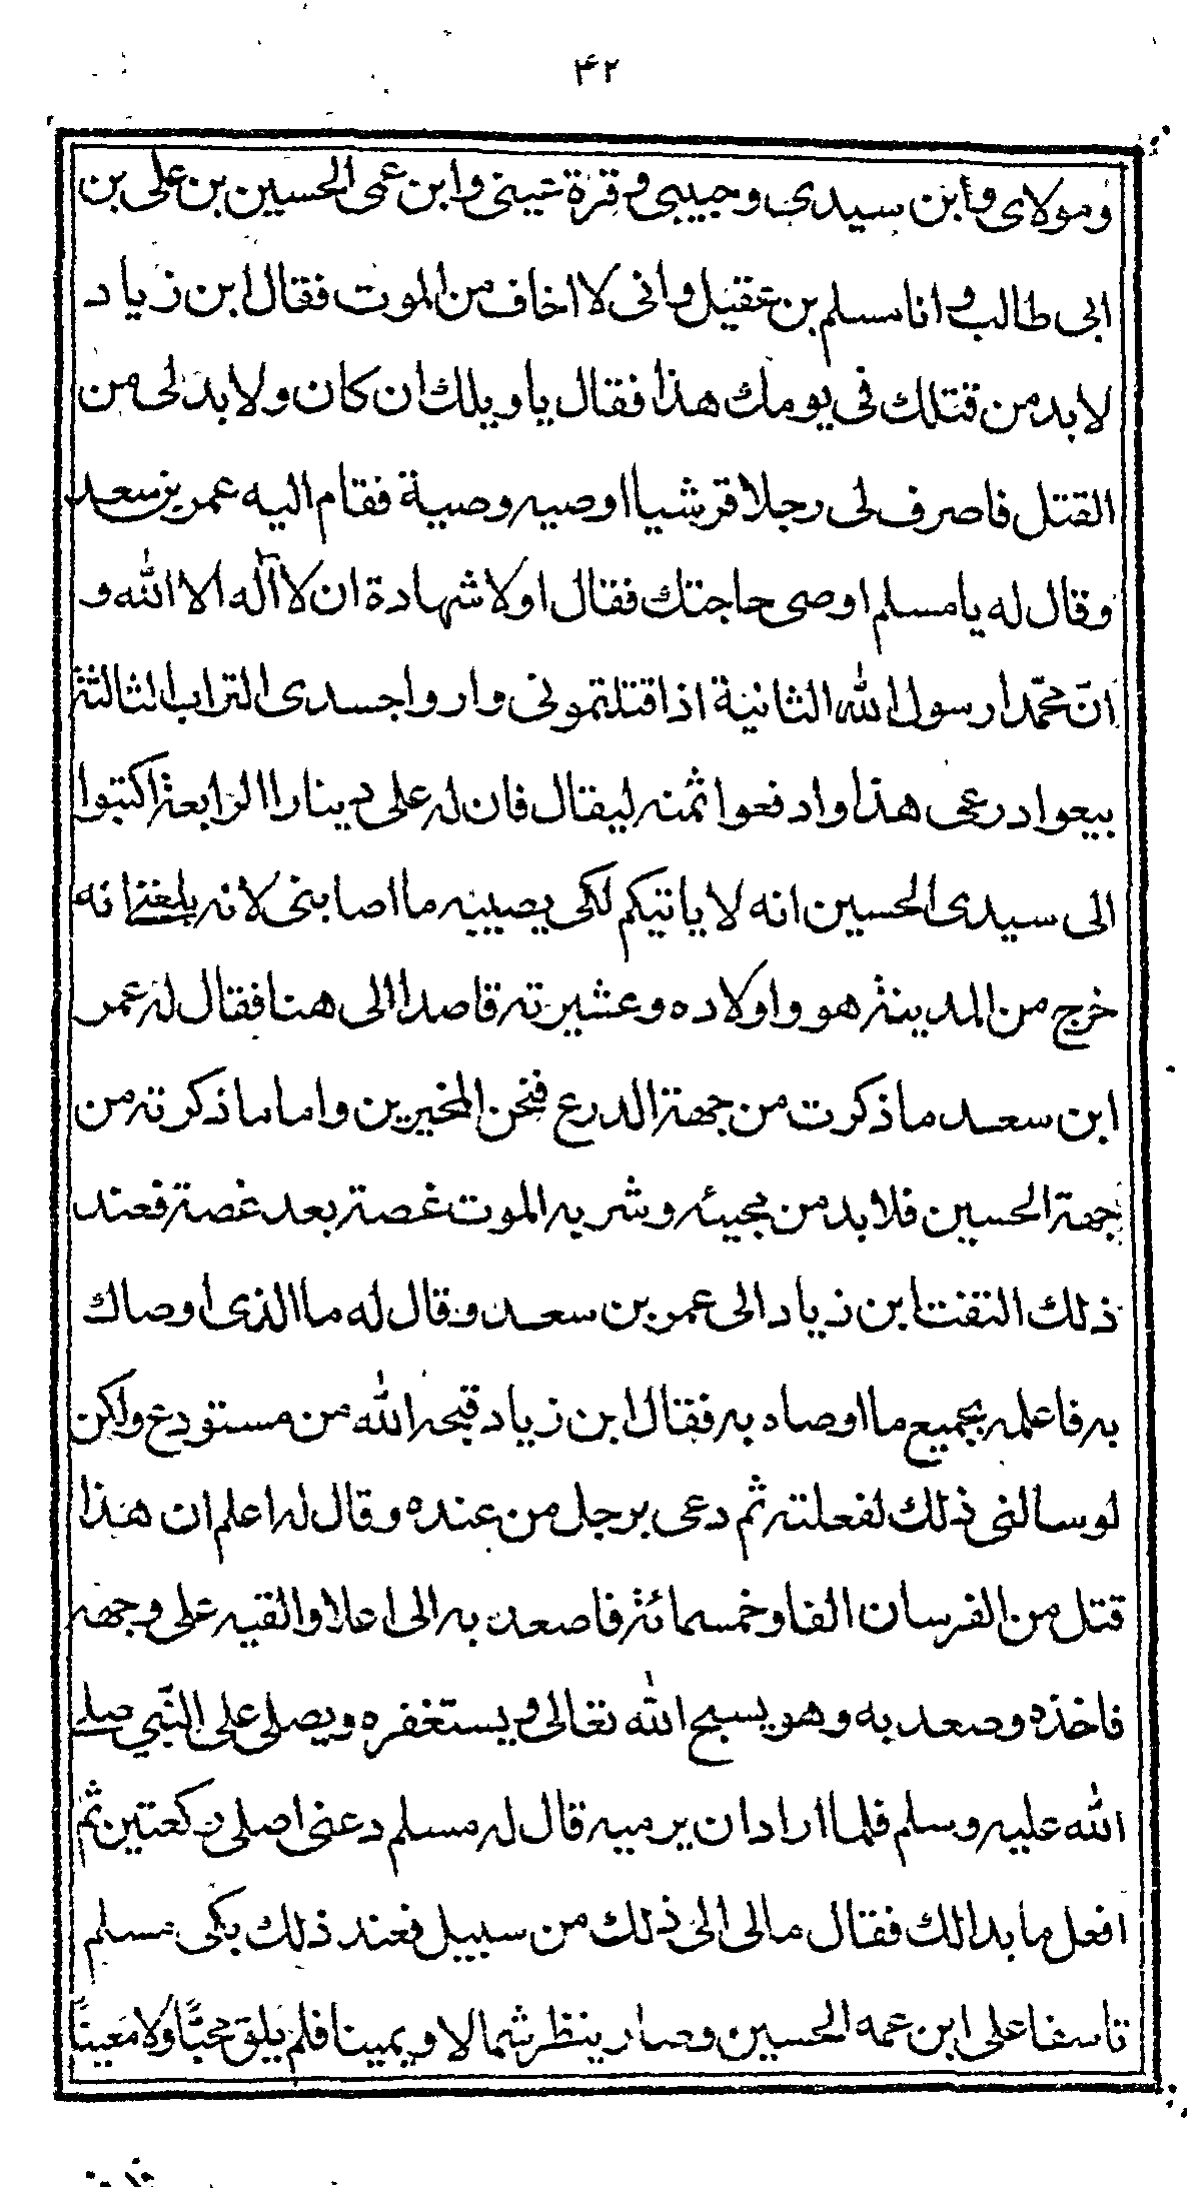 ۴۲
ومولاى وابن سيدى وحبيبى وقرة عينى وابن عمى الحسين بن على بن
ابى طالب وانا مسلم بن عقيل وانى لا اخاف من الموت فقال ابن زياد
لابد من قتلك فى يومك هذا فقال يا ويلك ان كان ولابد لى من
القتل فاصرف لى رجلا قرشيا اوصيه وصية فقام اليه عمر بن سعد
وقال له يا مسلم اوصى حاجتك فقال اولا شهادة ان لا آله الا الله و
انّ محمّدا رسول الله الثانية اذا قتلتمونى واروا جسدى التراب الثالثة
بيعوا درعى هذا وادفعوا ثمنه ليقال فان له على دينارا الرابعة اكتبوا
الى سيدى الحسين انه لا ياتيكم لكى يصيبه ما اصابنى لانه بلغنى انه
خرج من المدينة هو واولاده وعشيرته قاصدا الى هنا فقال له عمر
ابن سعد ما ذكرت من جهة الدرع فنحن المخيرين واما ما ذكرته من
جهة الحسين فلابد من مجيئه وشربه الموت غصة بعد غصة فعند
ذلك التفت ابن زياد الى عمر بن سعد وقال له ما الذى اوصاك
به فاعلمه بجميع ما اوصاه به فقال ابن زياد قبحه الله من مستودع ولكن
لو سالنى ذلك لفعلته ثم دعى برجل من عنده وقال له اعلم ان هذا
قتل من الفرسان الفا وخمسمائة فاصعد به الى اعلا والقيه على وجهه
فاخذه وصعد به وهو يسبح الله تعالى ويستغفره ويصلى على النّبي صلى
الله عليه وسلم فلما اراد ان يرميه قال له مسلم دعنى اصلى ركعتين ثم
افعل ما بدالك فقال مالى الى ذلك من سبيل فعند ذلك بكى مسلم
تاسفا على ابن عمه الحسين وصار ينظر شمالا ويمينا فلم يلق محبًّا ولا معينًا